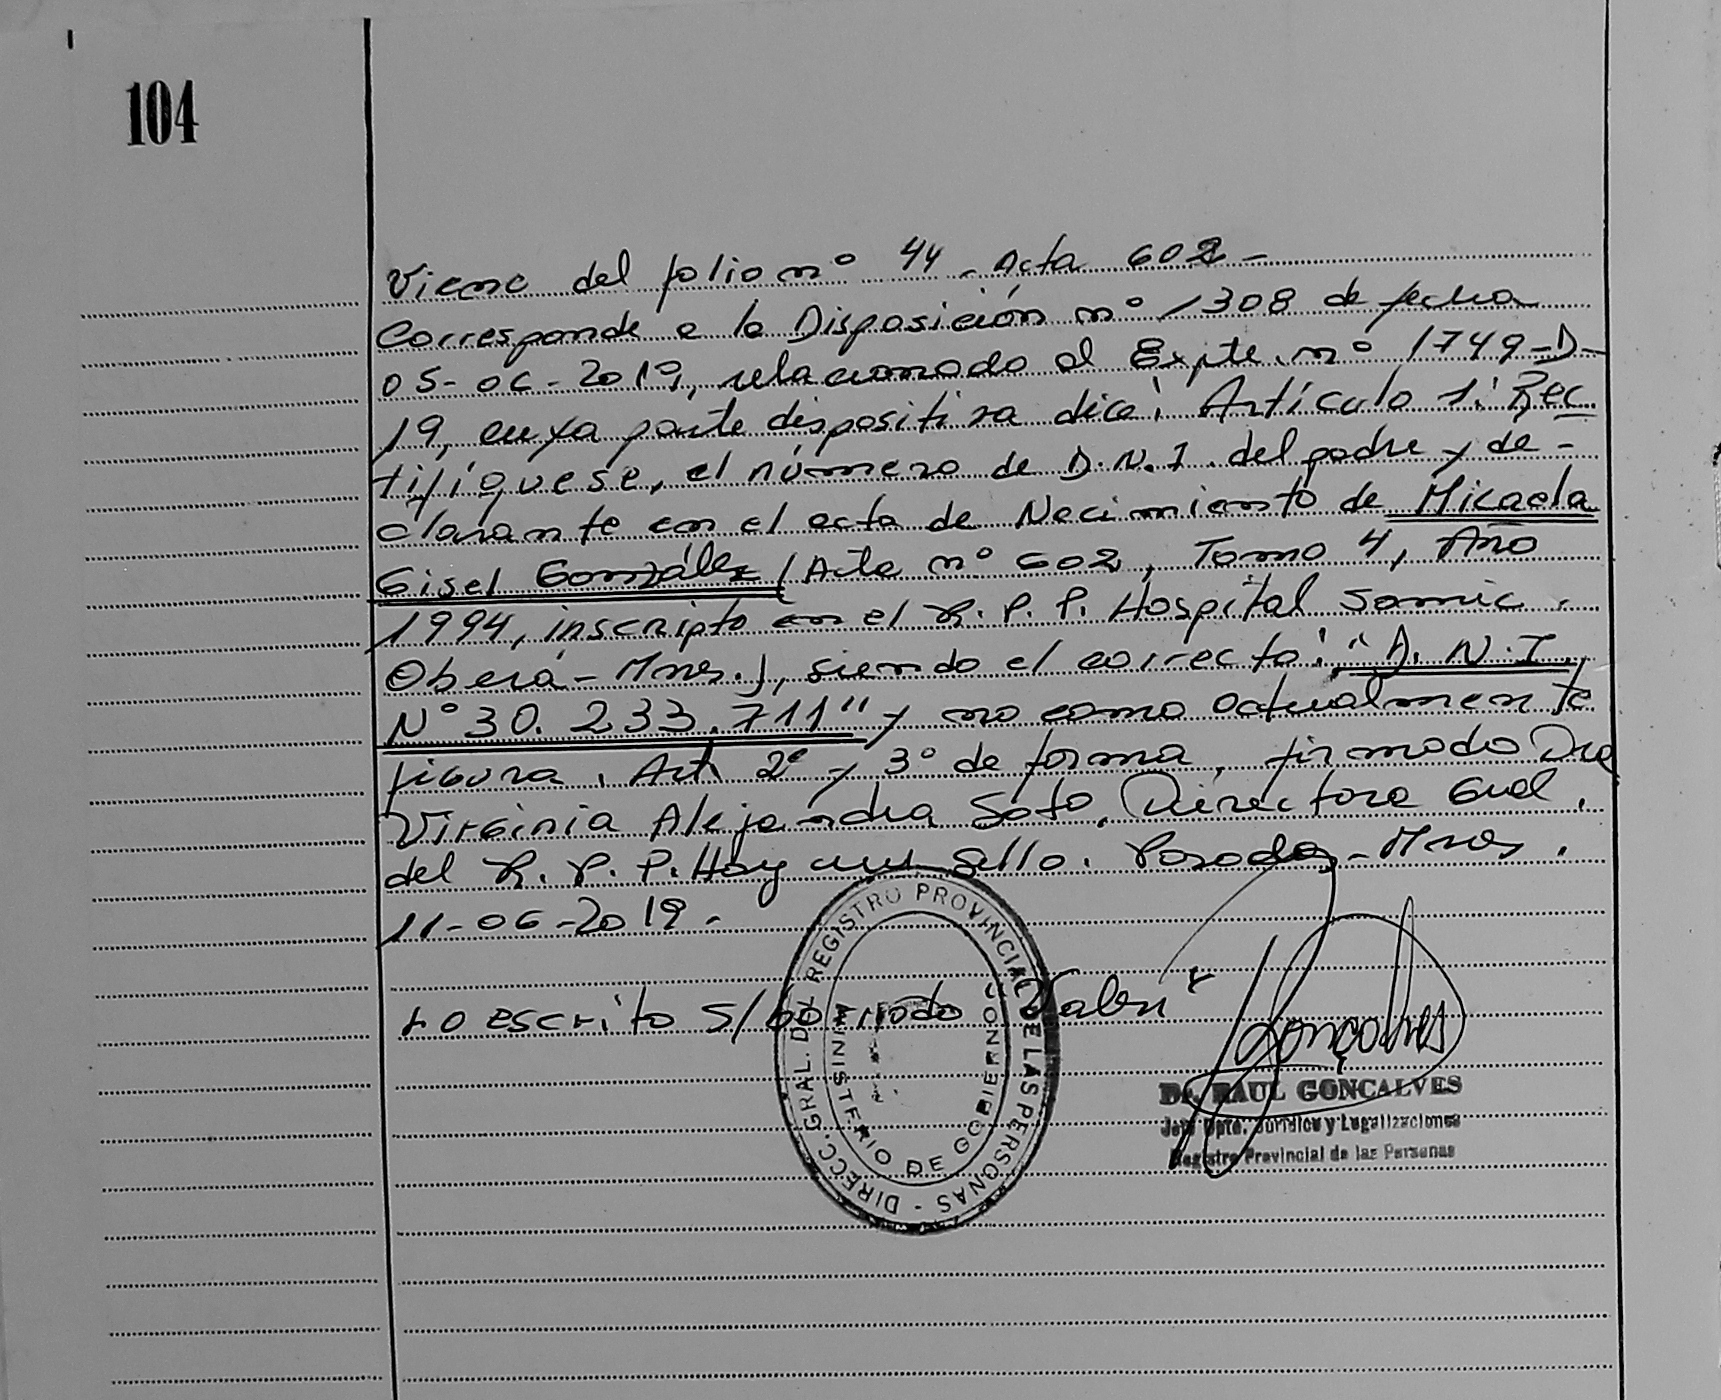 104
Viene del folio nº 44. Acta 602-
Corresponde a la Disposición nº 1308 de fecha
05-06-2019, relacionado al Expte. nº 1749-D-
19, cuya parte dispositiva dice: Artículo 1: Rec
tifíquese, el número de D.N.I. del padre y de-
clarante en el acta de Nacimiento de Micaela
Gisel González (Acta nº 602, Tomo 4, Año
1994, inscripto en el R. P. P. Hospital Samic.
Oberá-Mnes.), siendo el correcto: "D. N. I.
Nº 30. 233. 711" y no como actualmente
figura. Art. 2º y 3º de forma, firmado Dra
Virginia Alejandra Soto, Directora Gral.
del R. P. P. Hay un sello. Posadas-Mnes.
11-06-2019.
Lo escrito s/borrado Vale.
DIRECC. GRAL. DEL REGISTRO PROVINCIAL DE LAS PERSONAS -
MINISTERIO DE GOBIERNO
Gonçalves
Dr. RAUL GONCALVES
Jefe Dpto. Jurídico y Legalizaciones
Registro Provincial de las Personas